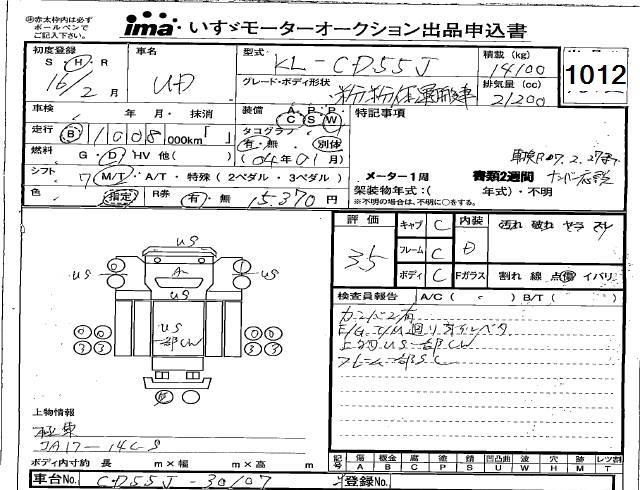 ㊟赤太枠内は必ず
ボールペンで
ご記入下さい。
ima いすゞモーターオークション出品申込書
1012
初度登録
S H R
16/2月
車名
UD
型式
KL-CD55J
積載 (kg)
14100
グレード・ボディ形状
排気量 (cc)
21200
車検
年 月・抹消
装備 A P P
C S W
特記事項
走行 B 1008 000km「 」
タコグラフ
有・無 別体
燃料 G・D HV 他( )
(04年01月)
車検R07.2.27まで
シフト 7 M/T・A/T・特殊(2ペダル・3ペダル)
メーター1周
書類2週間
色 指定 R券 有・無 15,370円
架装物年式:( 年式)・不明
※不明の場合は、不明に○をする。
評価
35
キャブ C
フレーム C
ボディ C
内装 D
汚れ 破れ ヤラ スレ
Fガラス 割れ 線 点 傷 イバリ
検査員報告 A/C ( ) B/T ( )
US
US
A
US
US
US
一部CW
上物US一部CW
フレーム一部SC
上物情報
極東
JA17-14CS
ボディ内寸約 長 m×幅 m×高 m
記号 傷 板金 腐 塗 錆 凹凸曲 波 穴 跡 レツ割
A B C P S U W H M T
車台No. CD55J-30107
登録No.